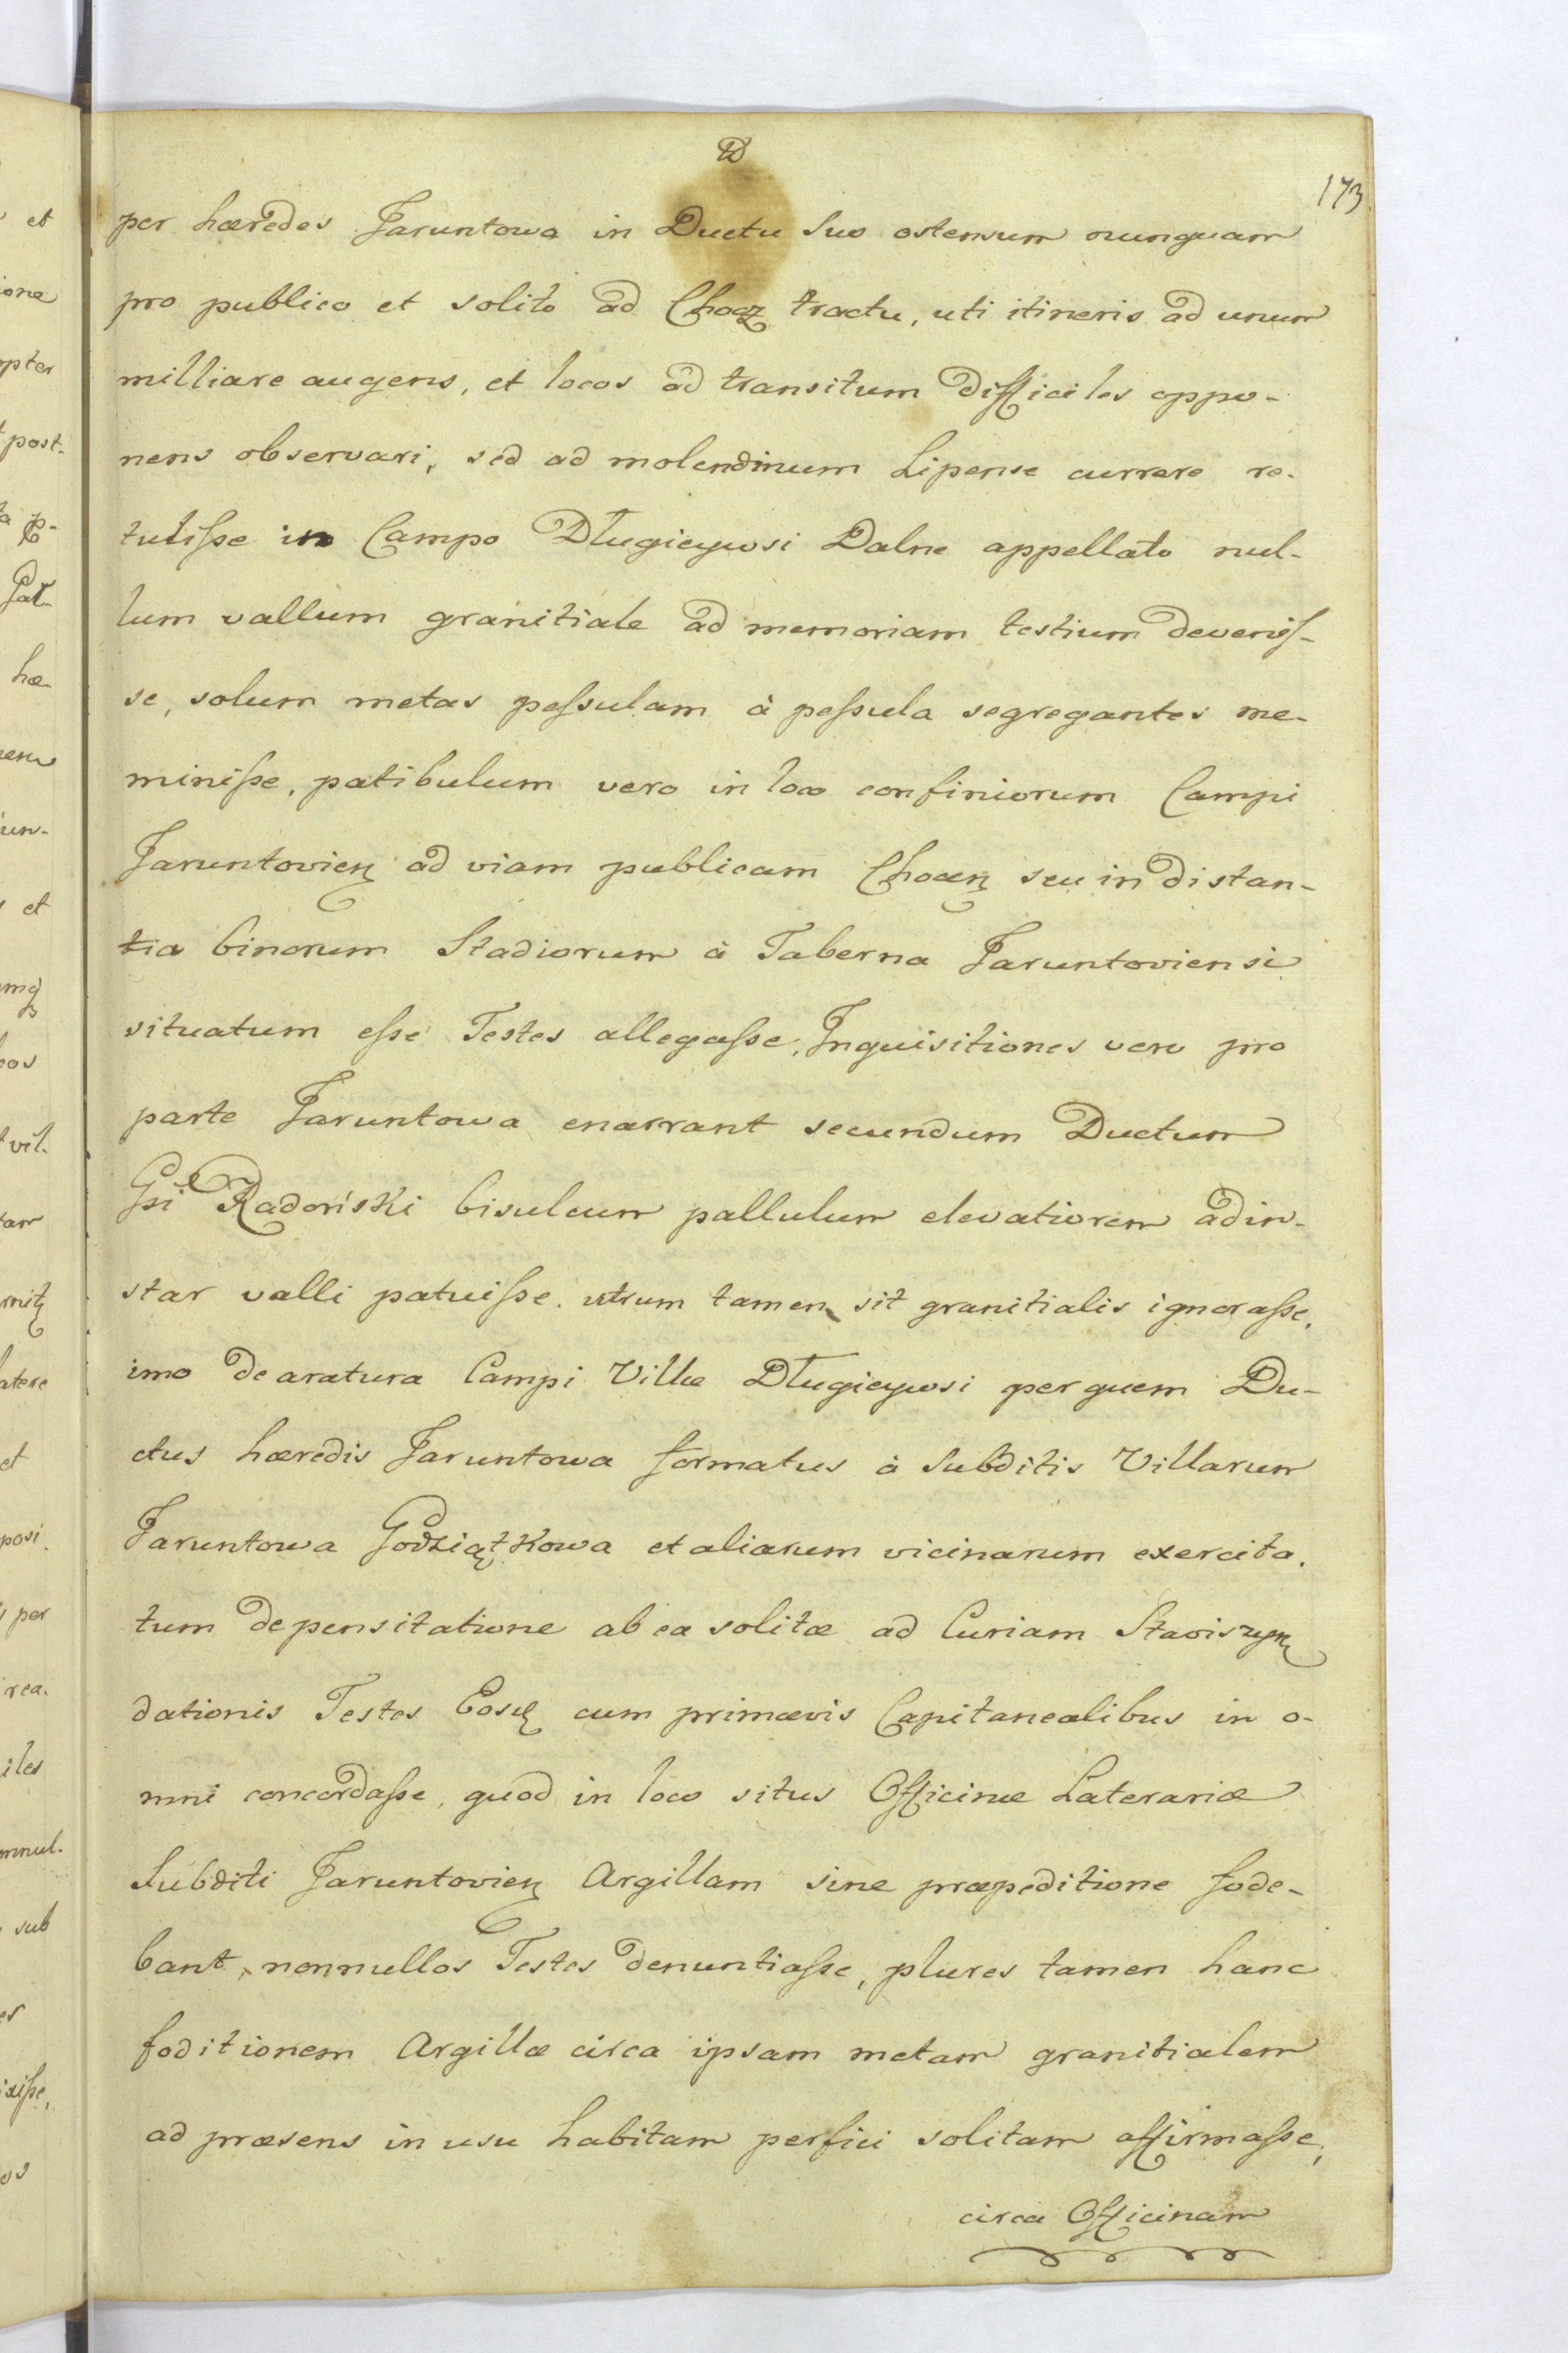 173
per hæredes Jaruntowa in Ductu Suo ostensum nunquam
pro publico et solito ad Chocz tractu, uti itineris ad unum
milliare augens, et locos ad transitum difficiles oppo-
nens observari, sed ad molendinum Lipense currere re-
tulisse in Campo Długieywsi Dalne appellato nul-
lum vallum granitiale ad memoriam testium devenis-
se, solum metas pessulam à pessula segregantes me-
minisse, patibulum vero in loco confiniorum Campi
Jaruntovien ad viam publicam Chocen seu in distan-
tia binorum Stadiorum à Taberna Jaruntoviensi
situatum esse Testes allegasse, Inquisitiones vero pro
parte Jaruntowa enarrant secundum Ductum
Gsi Radoński bisulcum pallulum elevatiorem adin-
star valli patuisse. utrum tamen sit granitialis ignorasse,
imo de aratura Campi Villæ Długieywsi per quem Du-
ctus hæredis Jaruntowa formatus à Subditis Villarum
Jaruntowa Godziątkowa et aliarum vicinarum exercita.
tum de pensitatione ab ea solitæ ad Curiam Stawiszyn
dationis Testes Eosd cum primævis Capitanealibus in o-
mni concordasse, quod in loco situs Officinæ Laterariæ
Subditi Jaruntovien Argillam sine præpeditione fode-
bant, nonnullos Testes denuntiasse, plures tamen hanc
foditionem Argillæ circa ipsam metam granitialem
ad præsens in usu habitam perfici solitam affirmasse,
circa Officinam
et
post.
hæ
et
et
per
sub